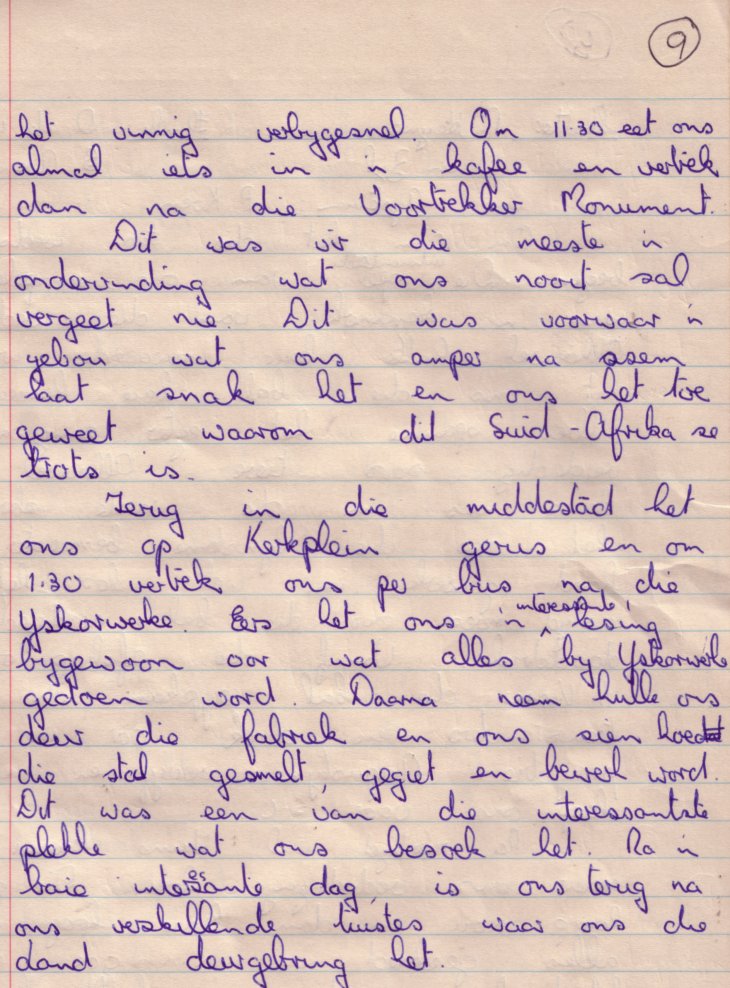 9
het vinnig verbygesnel. Om 11.30 eet ons
almal iets in 'n kafee en vertrek
dan na die Voortrekker Monument.
Dit was vir die meeste 'n
ondervinding wat ons nooit sal
vergeet nie. Dit was voorwaar 'n
gebou wat ons amper na asem
laat snak het en ons het toe
geweet waarom dit Suid-Afrika se
trots is.
Terug in die middestad het
ons op Kerkplein gerus en om
1.30 vertrek ons per bus na die
Yskorwerke. Eers het ons 'n interessante lesing
bygewoon oor wat alles by Yskorwerke
gedoen word. Daarna neem hulle ons
deur die fabriek en ons sien hoe
die staal gesmelt, gegiet en bewerk word.
Dit was een van die interessantste
plekke wat ons besoek het. Na 'n
baie interessante dag, is ons terug na
ons verskillende tuistes waar ons die
aand deurgebring het.